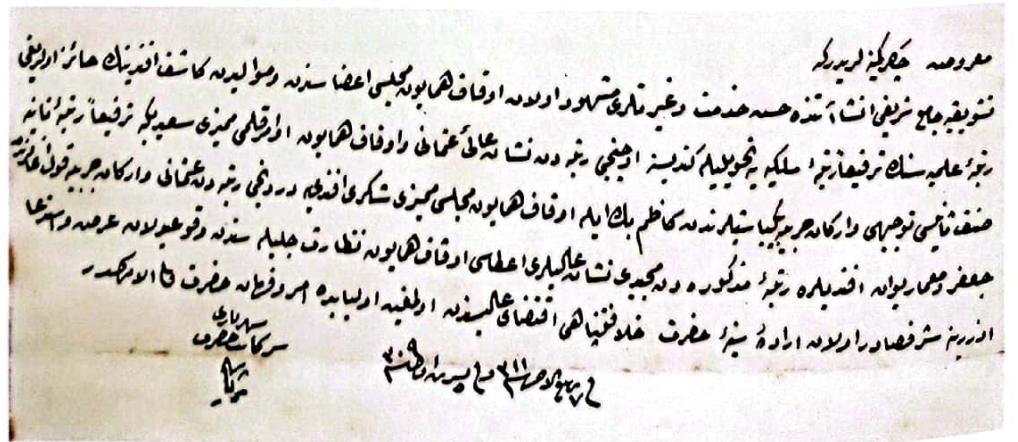 معروض چاكر كمينه لريدركه
تشويقيه جامع شريفى انشا آتنده حسن خدمت وغيرتلرى مشهود اولان اوقاف همايون مجلسى اعضا سندن وموالیدن كاشف افندينك حائز اولديغى
رتبۀ علميه سنك ترفيعاً رتبۀ ملكيه يه تحويليله كنديسنه اوچنجى رتبه دن نشان عالئ عثمانى واوقاف همايون اوراق قلمى مميزى سعيد بكه ترفيعاً رتبۀ ثانيه
صنف ثانيسى توجيهى واركان حربيه بيكباشيلرندن كاظم بك ايله اوقاف همايون مجلسى مميزى شكرى افندى يه دردنجى رتبه دن عثمانى واركان حربيه قول اغالرندن
جعفر ومعمار يوان افنديلره رتبۀ مذكوره دن مجيدى نشان عاليلرى اعطاسى اوقاف همايون نظارت جليله سندن وقوعبولان عرض واستدعا
اوزرينه شرفصادر اولان ارادۀ سنيۀ حضرت خلافتپناهى اقتضاى عاليسندن اولمغله اولبابده امر وفرمان حضرت من له الامركدر
فى ٧ ربيع الاخر سنه ٣١١ وفى ٥ تشرين اول سنه ٣٠٩
سر كاتب حضرت
شهريارى
ثريا